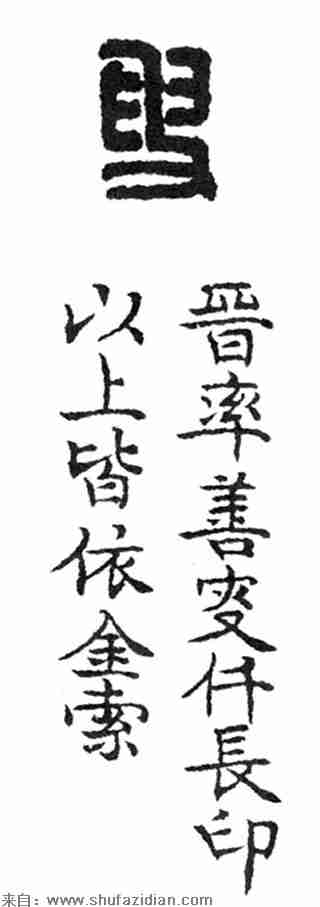 晉率善叜仟長印
以上皆依金索
来自：www.shufazidian.com